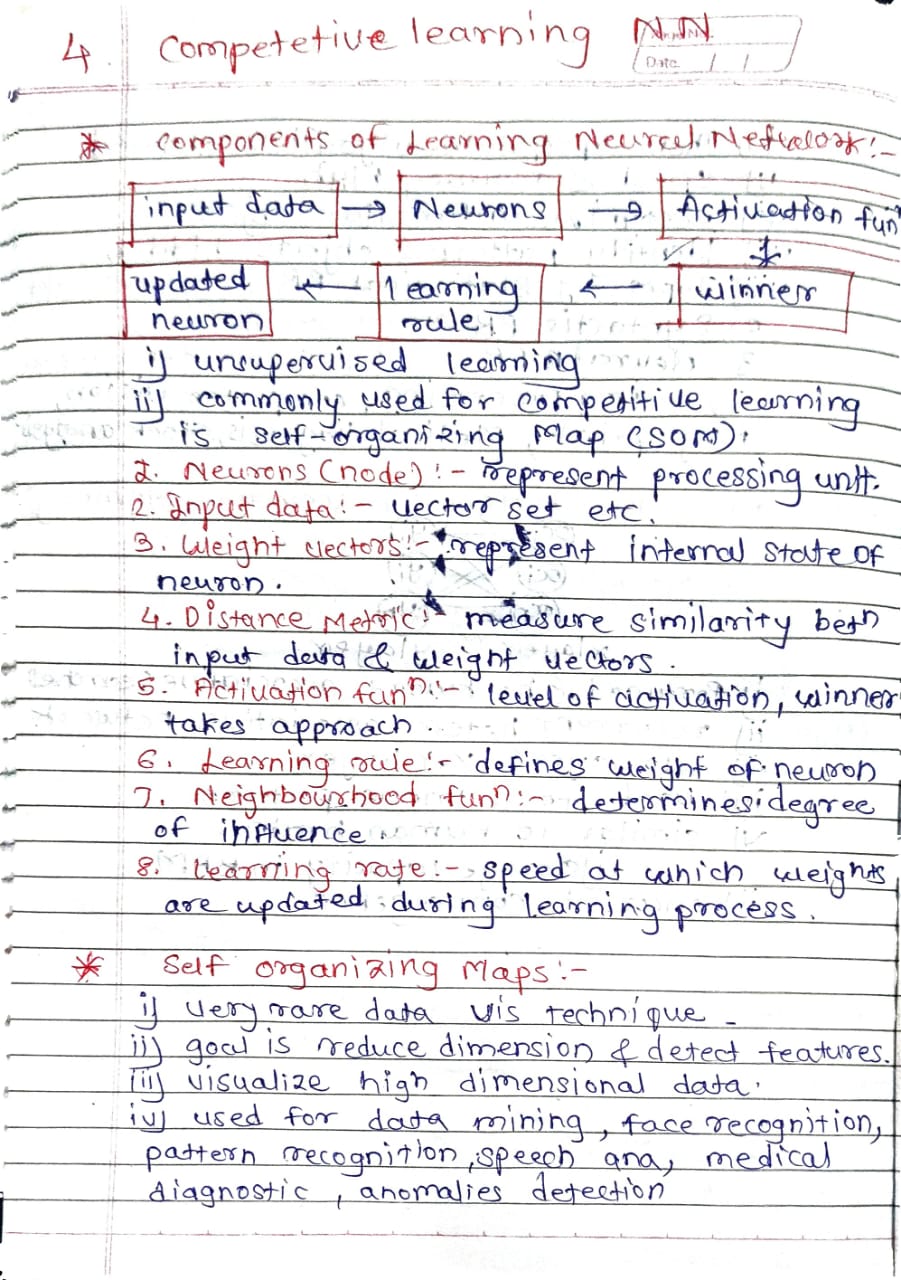 4. Competetive learning N.N.
Date / /
* Components of Learning Neural Network :-
input data → Neurons → Activation funⁿ
updated neuron ← learning rule ← winner
i) unsupervised learning
ii) commonly used for competitive learning
is self-organizing Map (SOM).
1. Neurons (node) :- represent processing unit.
2. Input data :- vector set etc.
3. Weight vectors :- represent internal state of
neuron.
4. Distance Metric :- measure similarity betn
input data & weight vectors.
5. Activation funⁿ :- level of activation, winner
takes approach.
6. Learning rule :- defines weight of neuron
7. Neighbourhood funⁿ :- determines degree
of influence
8. Learning rate :- speed at which weights
are updated during learning process.
* Self organizing Maps :-
i) very rare data vis technique -
ii) goal is reduce dimension & detect features.
iii) visualize high dimensional data.
iv) used for data mining, face recognition,
pattern recognition, speech ana, medical
diagnostic, anomalies detection